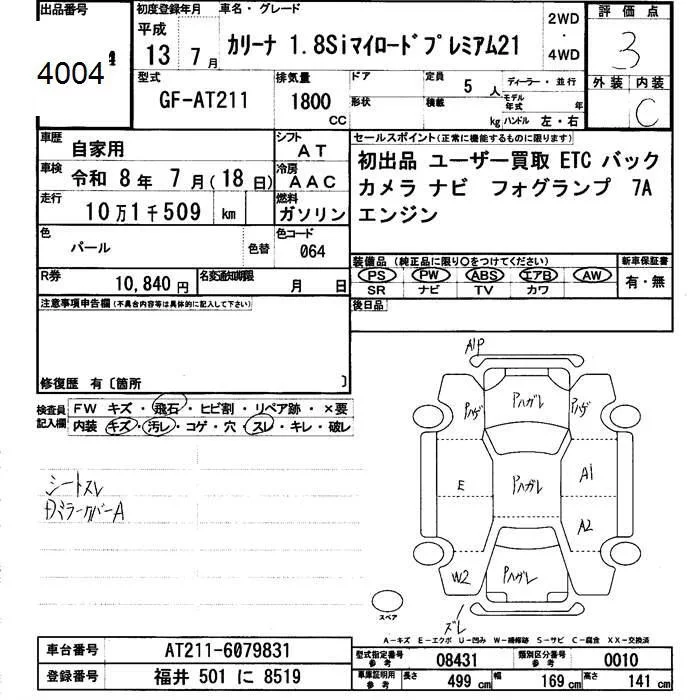 出品番号 4004
初度登録年月 平成 13 7月
車名・グレード カリーナ 1.8Siマイロードプレミアム21
2WD・4WD
評価点 3
型式 GF-AT211
排気量 1800 CC
ドア 形状
定員 5 人
積載 kg
ディーラー・並行
モデル年式 年
ハンドル 左・右
外装 内装 C
車歴 自家用
シフト AT
車検 令和 8年 7月(18日)
冷房 AAC
走行 10万1千509 km
燃料 ガソリン
色 パール 色替
色コード 064
R券 10,840円
名変通知期限 月 日
セールスポイント(正常に機能するものに限ります)
初出品 ユーザー買取 ETC バック
カメラ ナビ フォグランプ 7A
エンジン
装備品 (純正品に限り○をつけてください)
PS PW ABS エアB AW
SR ナビ TV カワ
新車保証書 有・無
後日品
注意事項申告欄(不具合内容等は具体的に記入して下さい)
修復歴 有〔箇所 〕
検査員記入欄
FW キズ・飛石・ヒビ割・リペア跡・×要
内装 キズ・汚レ・コゲ・穴・スレ・キレ・破レ
シートスレ
ミラーカバーA
A1P
Pハガレ
Pハゲ
Pハゲ
E
Pハガレ
A1
A2
W2
Pハガレ
ズレ
スペア
A-キズ E-エクボ U-凹み W-補修跡 S-サビ C-腐食 XX-交換済
車台番号 AT211-6079831
登録番号 福井 501 に 8519
型式指定番号 参考 08431
類別区分番号 参考 0010
車庫証明用 参考 長さ 499 cm 幅 169 cm 高さ 141 cm